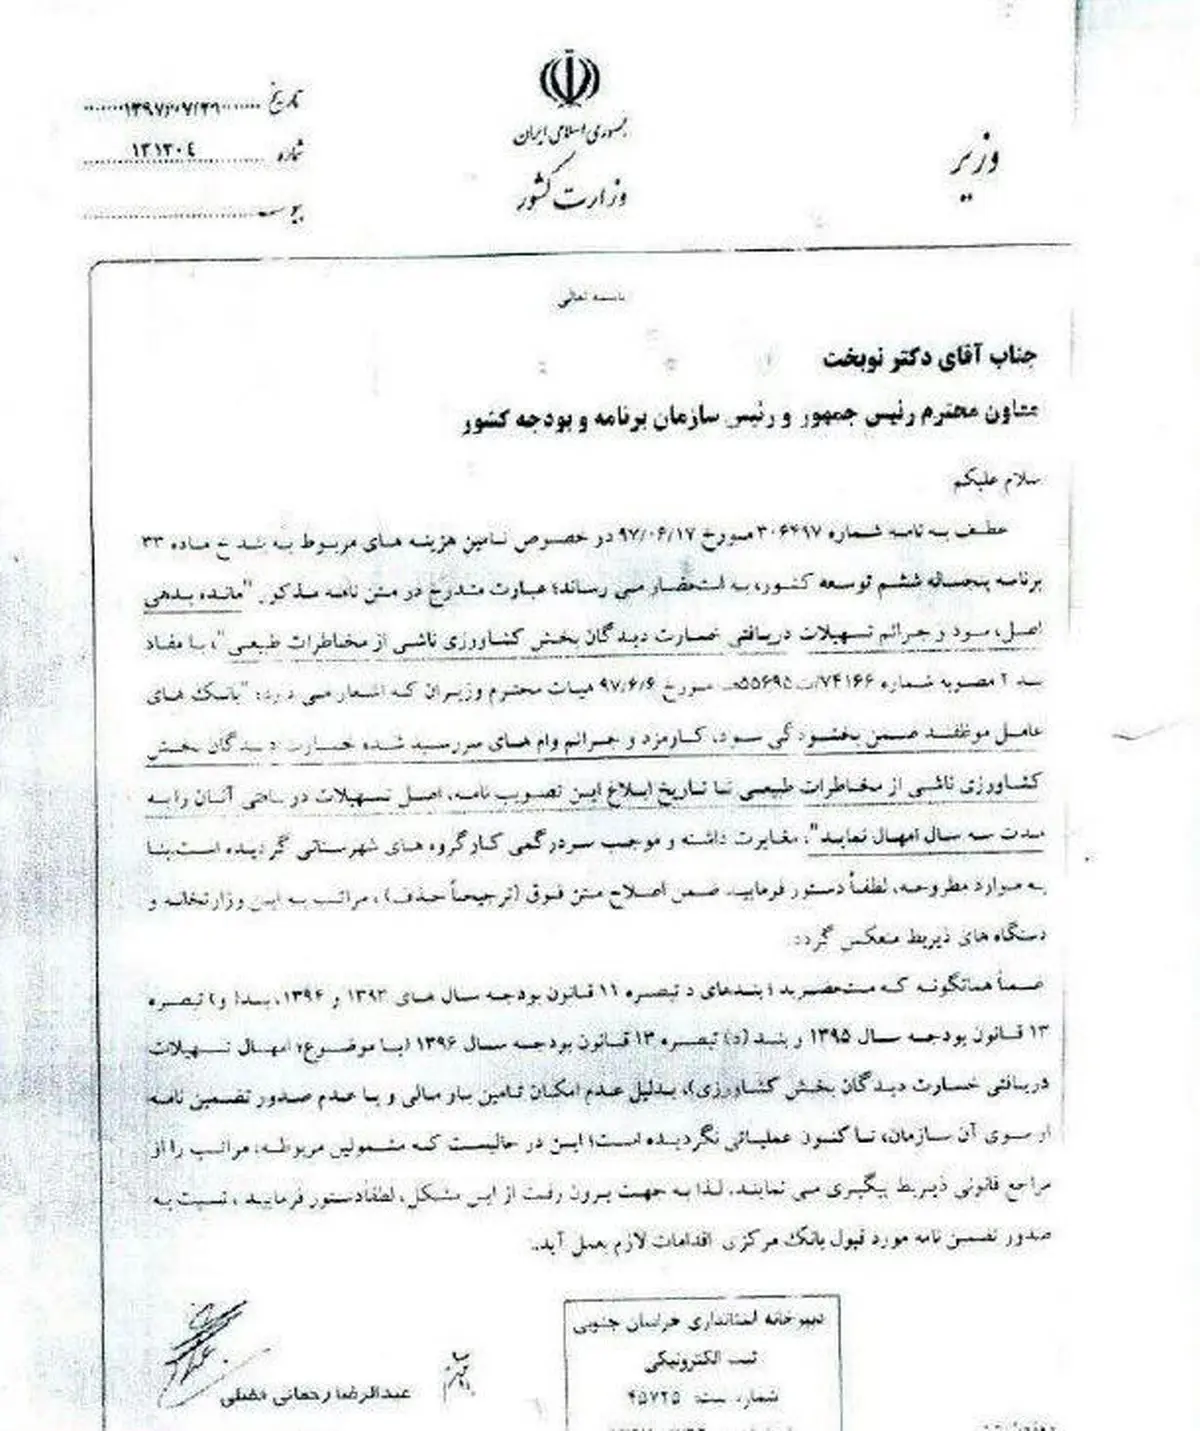 تاریخ ۱۳۹۷/۰۷/۲۹
جمهوری اسلامی ایران
شماره ۱۳۱۳۰۴
وزیر
وزارت کشور
پیوست
باسمه تعالی
جناب آقای دکتر نوبخت
معاون محترم رئیس جمهور و رئیس سازمان برنامه و بودجه کشور
سلام علیکم
عطف به نامه شماره ۳۰۶۴۹۷ مورخ ۹۷/۰۶/۱۷ در خصوص تامین هزینه های مربوط به بند خ ماده ۳۳
برنامه پنجساله ششم توسعه کشور، به استحضار می رساند؛ عبارت مندرج در متن نامه مذکور "مانده بدهی
اصل، سود و جرائم تسهیلات دریافتی خسارت دیدگان بخش کشاورزی ناشی از مخاطرات طبیعی"، با مفاد
بند ۲ مصوبه شماره ۷۴۱۶۶/ت۵۵۶۹۵هـ مورخ ۹۷/۶/۶ هیات محترم وزیران که اشعار می دارد: "بانک های
عامل موظفند ضمن بخشودگی سود، کارمزد و جرائم وام های سررسید شده خسارت دیدگان بخش
کشاورزی ناشی از مخاطرات طبیعی تا تاریخ ابلاغ این تصویب نامه، اصل تسهیلات دریافتی آنان را به
مدت سه سال امهال نماید"، مغایرت داشته و موجب سردرگمی کارگروه های شهرستانی گردیده است.بنا
به موارد مطروحه، لطفاً دستور فرمایید ضمن اصلاح متن فوق (ترجیحاً حذف)، مراتب به این وزارتخانه و
دستگاه های ذیربط منعکس گردد.
ضمناً همانگونه که مستحضرید؛ بندهای د تبصره ۱۱ قانون بودجه سال های ۱۳۹۳ و ۱۳۹۴، بند( و) تبصره
۱۳ قانون بودجه سال ۱۳۹۵ و بند (د) تبصره ۱۳ قانون بودجه سال ۱۳۹۶ (با موضوع؛ امهال تسهیلات
دریافتی خسارت دیدگان بخش کشاورزی)، بدلیل عدم امکان تامین بار مالی و یا عدم صدور تضمین نامه
از سوی آن سازمان، تا کنون عملیاتی نگردیده است؛ این در حالیست که مشمولین مربوطه، مراتب را از
مراجع قانونی ذیربط پیگیری می نمایند. لذا به جهت برون رفت از این مشکل، لطفادستور فرمایید ، نسبت به
صدور تضمین نامه مورد قبول بانک مرکزی اقدامات لازم بعمل آید.
دبیرخانه استانداری خراسان جنوبی
ثبت الکترونیکی
شماره ثبت: ۴۵۷۲۵
عبدالرضا رحمانی فضلی